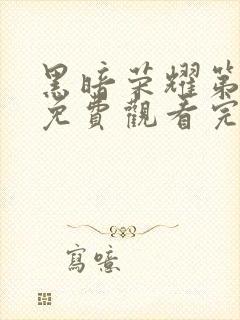 黑暗荣耀第
免費觀看完
寫噫